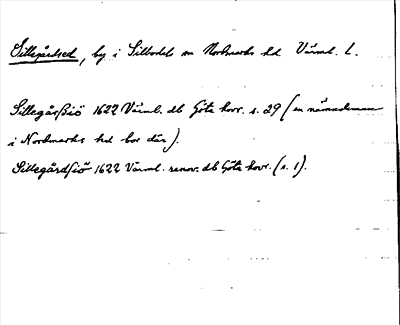 Sillegårdsed, by i Sillbodals sn Nordmarks hd Värml. l.
Sillegårßiö 1622 Värml. db Göta hovr. s. 29 (en nämndeman
i Nordmarks hd bor där).
Sillegårdſiö 1622 Värml. renov. db Göta hovr. (s. 1).